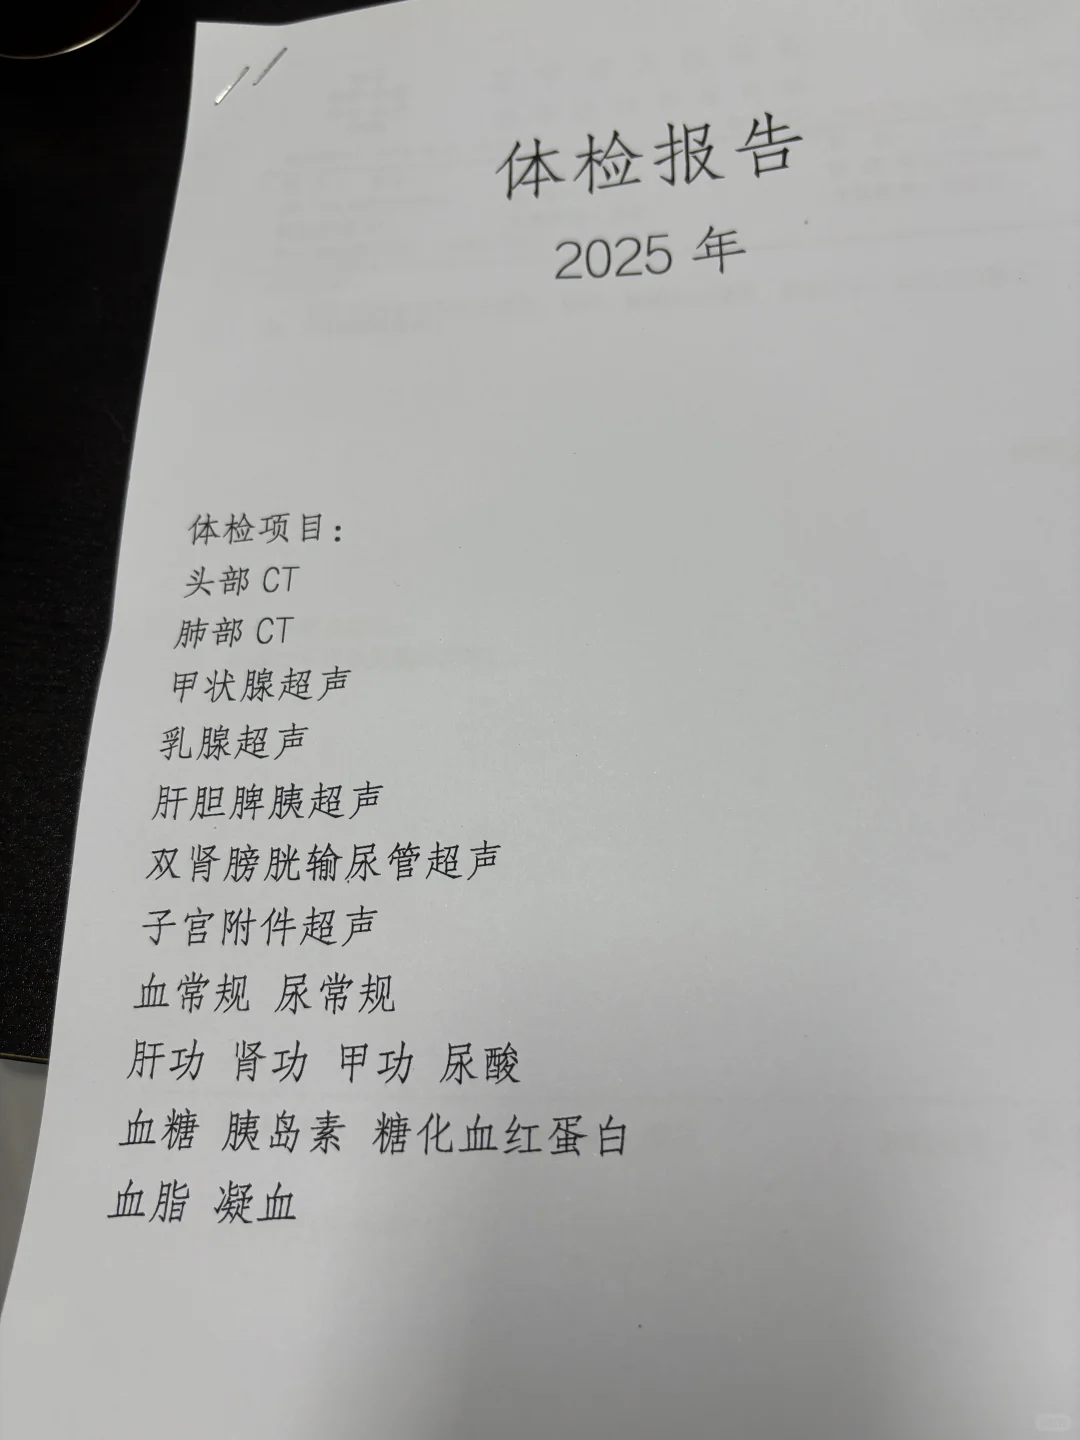 体检报告
2025 年
体检项目：
头部 CT
肺部 CT
甲状腺超声
乳腺超声
肝胆脾胰超声
双肾膀胱输尿管超声
子宫附件超声
血常规 尿常规
肝功 肾功 甲功 尿酸
血糖 胰岛素 糖化血红蛋白
血脂 凝血